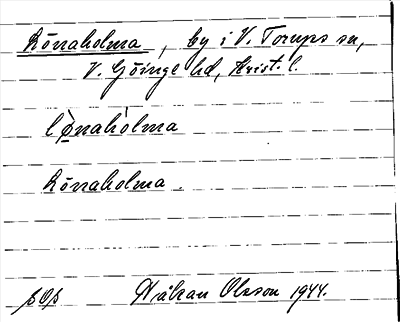 Lönaholma, by i V. Torups sn,
V. Göinge hd, Krist. l.
lø̀nahòlma
Lönaholma.
Håkan Olsson 1944.